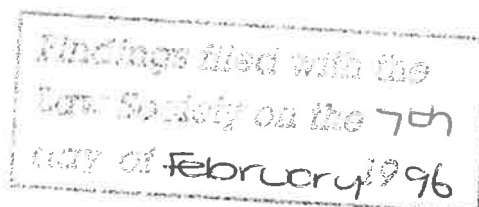 Findings filed with the
Law Society on the 7th
day of February 1996